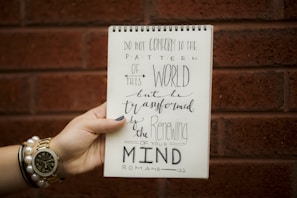 DO NOT CONFORM TO THE
PATTERN
OF THIS WORLD
but be
transformed
by the RENEWING
OF YOUR
MIND
ROMANS 12:2